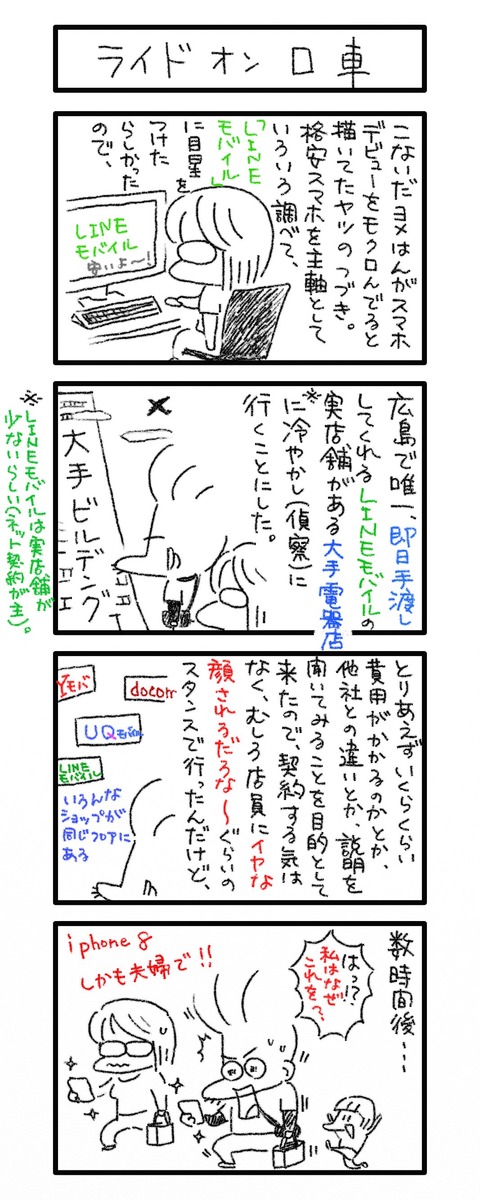 ライドオン口車
こないだヨメはんがスマホ
デビューをモクロんでると
描いてたヤツのつづき。
格安スマホを主軸として
いろいろ調べて、
「LINE
モバイル」
に目星を
つけた
らしかった
ので、
LINE
モバイル
安いよ〜!
広島で唯一、即日手渡し
してくれるLINEモバイルの
※実店舗がある大手電器店
に冷やかし(偵察)に
行くことにした。
大手ビルデング
※LINEモバイルは実店舗が
少ないらしい(ネット契約が主)。
とりあえずいくらくらい
費用がかかるのかとか、
他社との違いとか、説明を
聞いてみることを目的として
来たので、契約する気は
なく、むしろ店員にイヤな
顔されるだろな〜ぐらいの
スタンスで行ったんだけど、
Y!モバ
docom
UQモバイル
LINE
モバイル
いろんな
ショップが
同じフロアに
ある
数時間後…
はっ!?
私はなぜ
これを?
iphone 8
しかも夫婦で!!